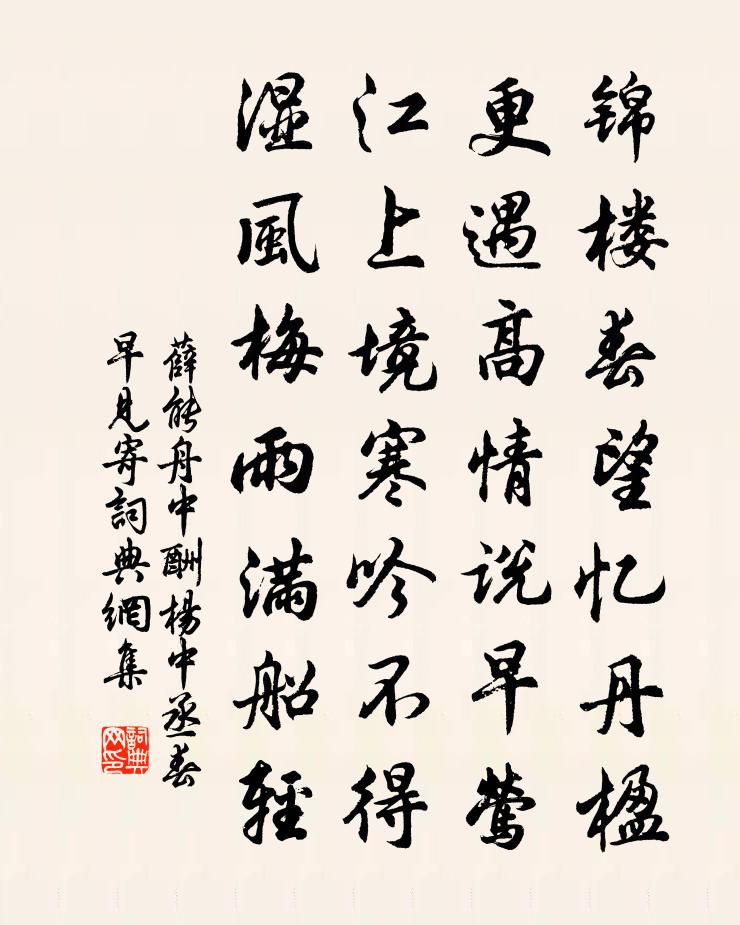 锦楼春望忆丹楹
更遇高情说早莺
江上境寒吟不得
湿風梅雨满船轻
薛能舟中酬楊中丞春
早見寄詞典網集
詞典网印